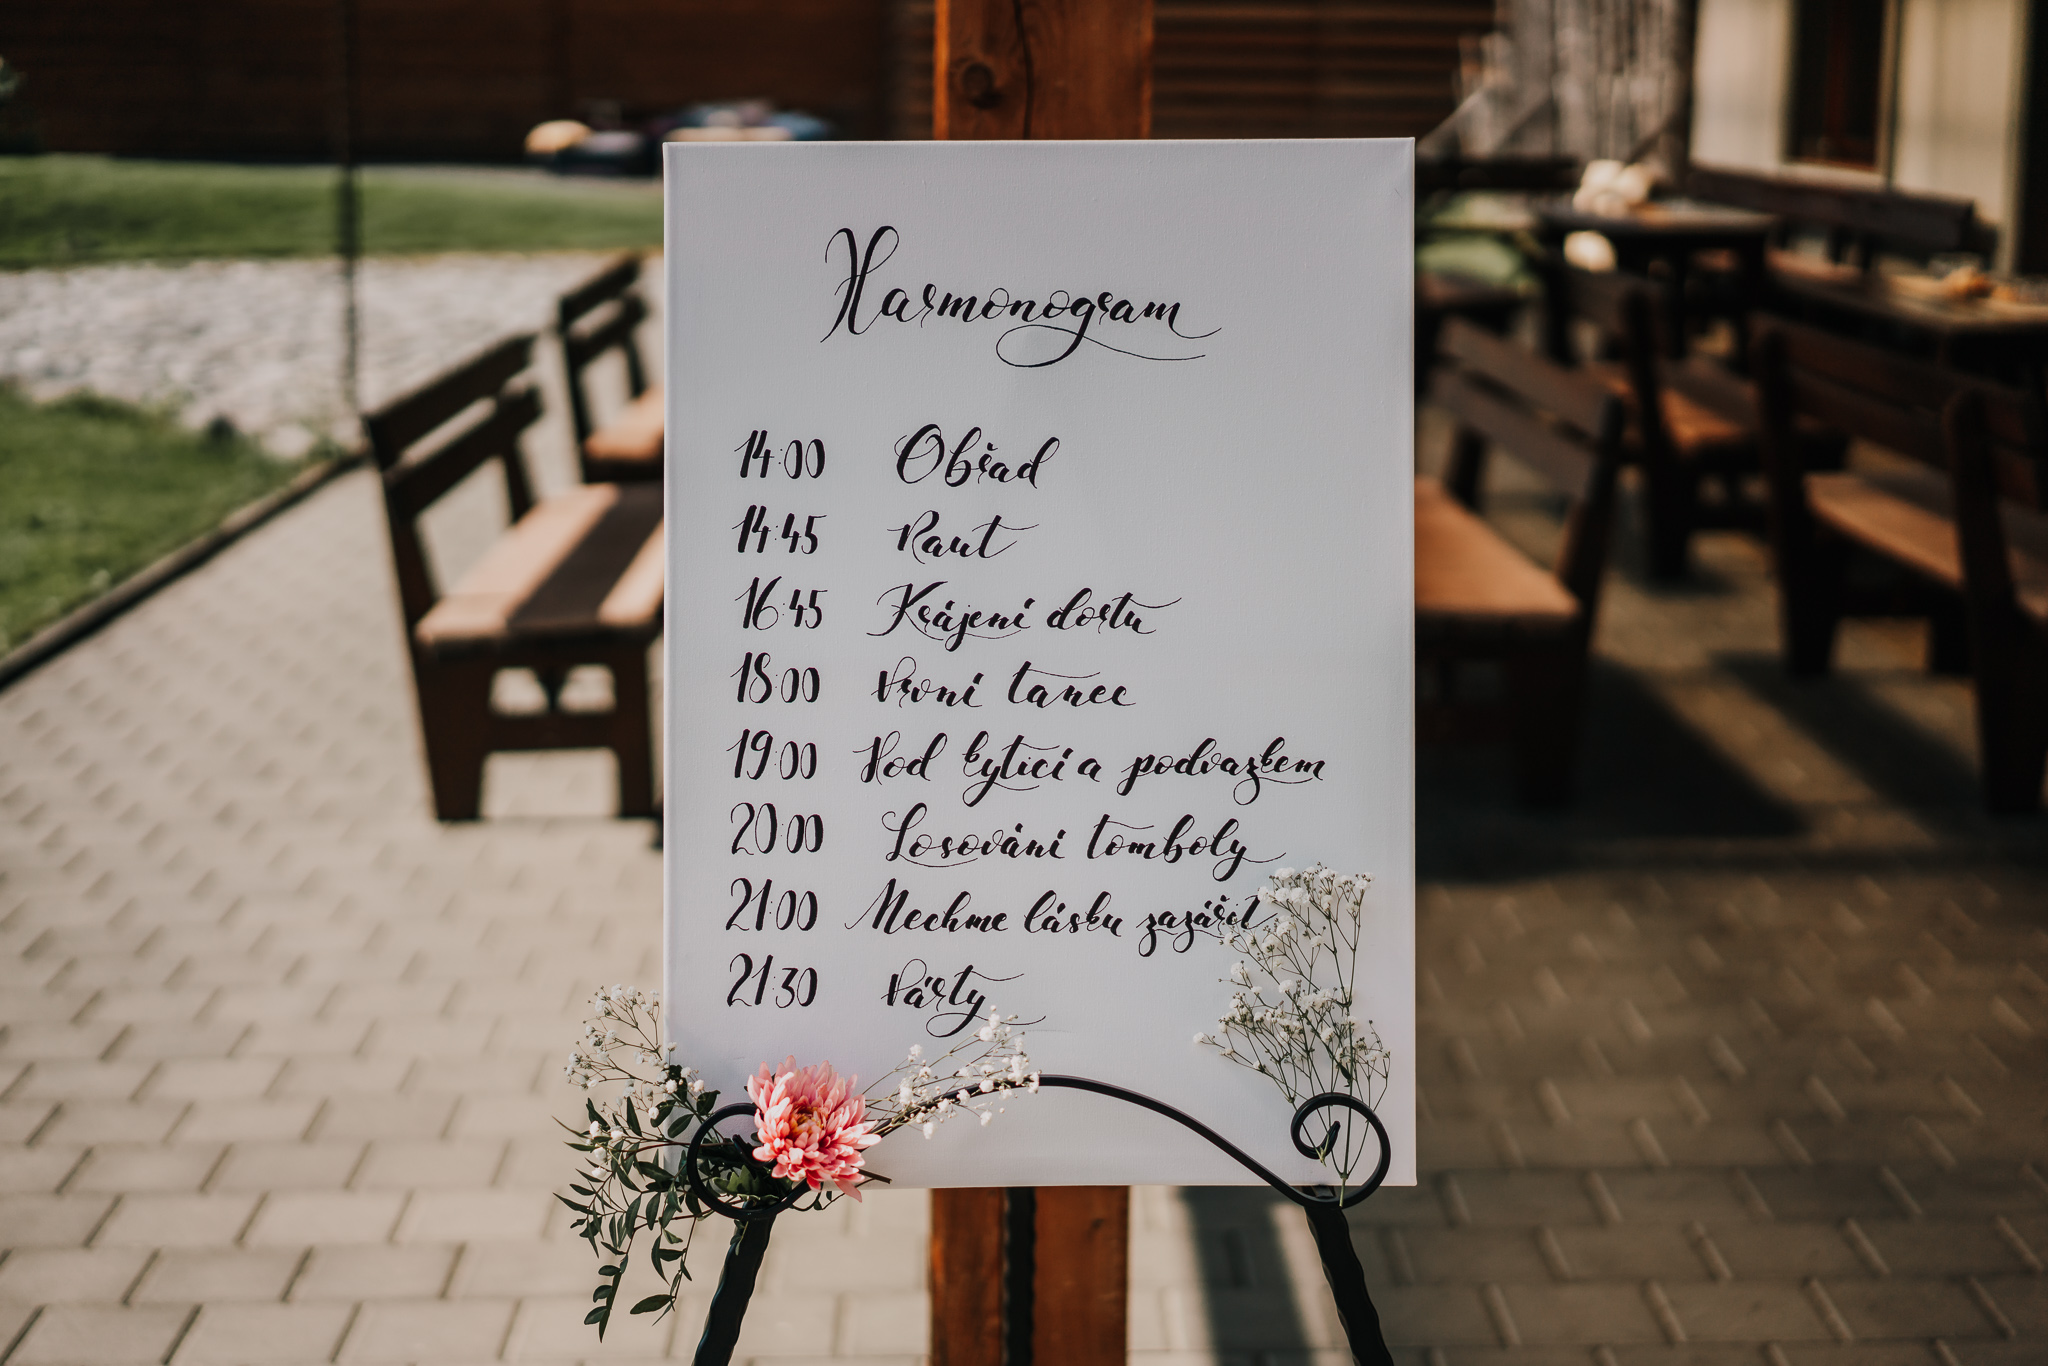 Harmonogram
14:00 Obřad
14:45 Raut
16:45 Krájení dortu
18:00 První tanec
19:00 Hod kyticí a podvazkem
20:00 Losování tomboly
21:00 Nechme lásku zazářit
21:30 Párty